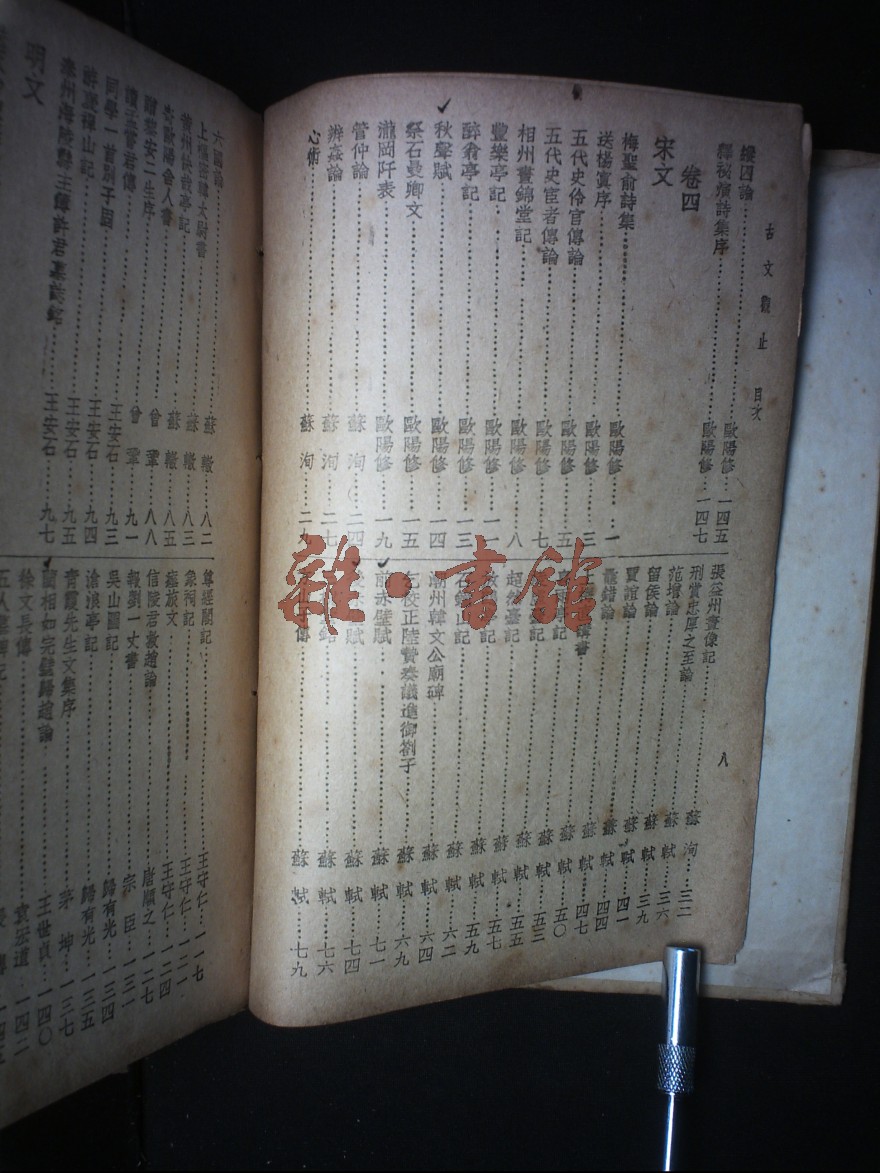 古文觀止 目次
八
縱囚論 歐陽修 一四五
釋祕演詩集序 歐陽修 一四七
卷四
宋文
梅聖俞詩集 歐陽修 一
送楊寘序 歐陽修 三
五代史伶官傳論 歐陽修 五
五代史宦者傳論 歐陽修 七
相州晝錦堂記 歐陽修 八
豐樂亭記 歐陽修 一一
醉翁亭記 歐陽修 一三
秋聲賦 歐陽修 一四
祭石曼卿文 歐陽修 一五
瀧岡阡表 歐陽修 一九
管仲論 蘇洵 二四
辨姦論 蘇洵 二七
心術 蘇洵 二九
張益州畫像記 蘇洵 三二
刑賞忠厚之至論 蘇軾 三六
范增論 蘇軾 三九
留侯論 蘇軾 四一
賈誼論 蘇軾 四四
鼂錯論 蘇軾 四七
書 蘇軾 五〇
亭記 蘇軾 五三
臺記 蘇軾 五五
超然臺記 蘇軾 五七
記 蘇軾 五九
石鐘山記 蘇軾 六二
潮州韓文公廟碑 蘇軾 六四
乞校正陸贄奏議進御劄子 蘇軾 六九
前赤壁賦 蘇軾 七一
賦 蘇軾 七四
銘 蘇軾 七六
傳 蘇軾 七九
六國論 蘇轍 八二
上樞密韓太尉書 蘇轍 八三
黃州快哉亭記 蘇轍 八五
寄歐陽舍人書 曾鞏 八八
贈黎安二生序 曾鞏 九一
讀孟嘗君傳 王安石 九三
同學一首別子固 王安石 九四
遊褒禪山記 王安石 九五
泰州海陵縣主簿許君墓誌銘 王安石 九七
明文
尊經閣記 王守仁 一一七
象祠記 王守仁 一二一
瘞旅文 王守仁 一二四
信陵君救趙論 唐順之 一二七
報劉一丈書 宗臣 一三一
吳山圖記 歸有光 一三四
滄浪亭記 歸有光 一三五
青霞先生文集序 茅坤 一三七
藺相如完璧歸趙論 王世貞 一四〇
徐文長傳 袁宏道 一四二
五人墓碑記 一四五
雜·書館